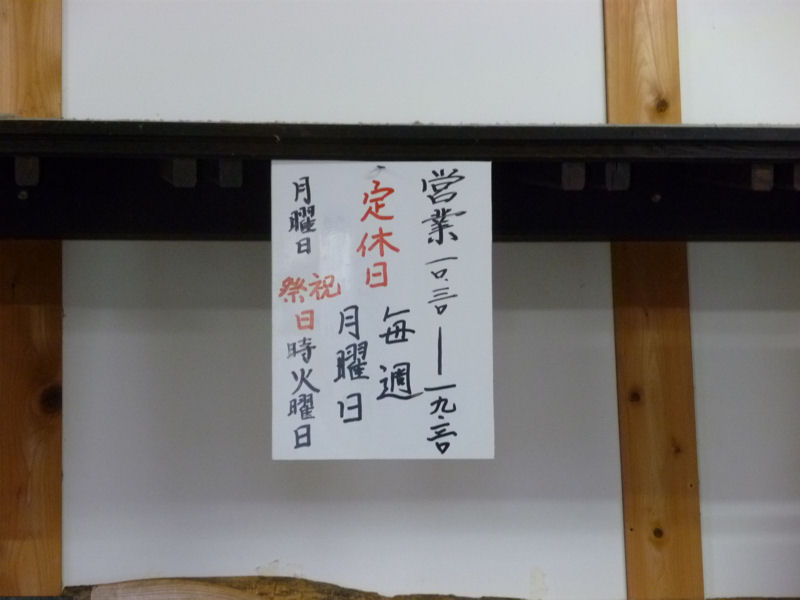 営業一〇.三〇―一九.三〇
定休日
毎週
月曜日
月曜日祝祭日時火曜日